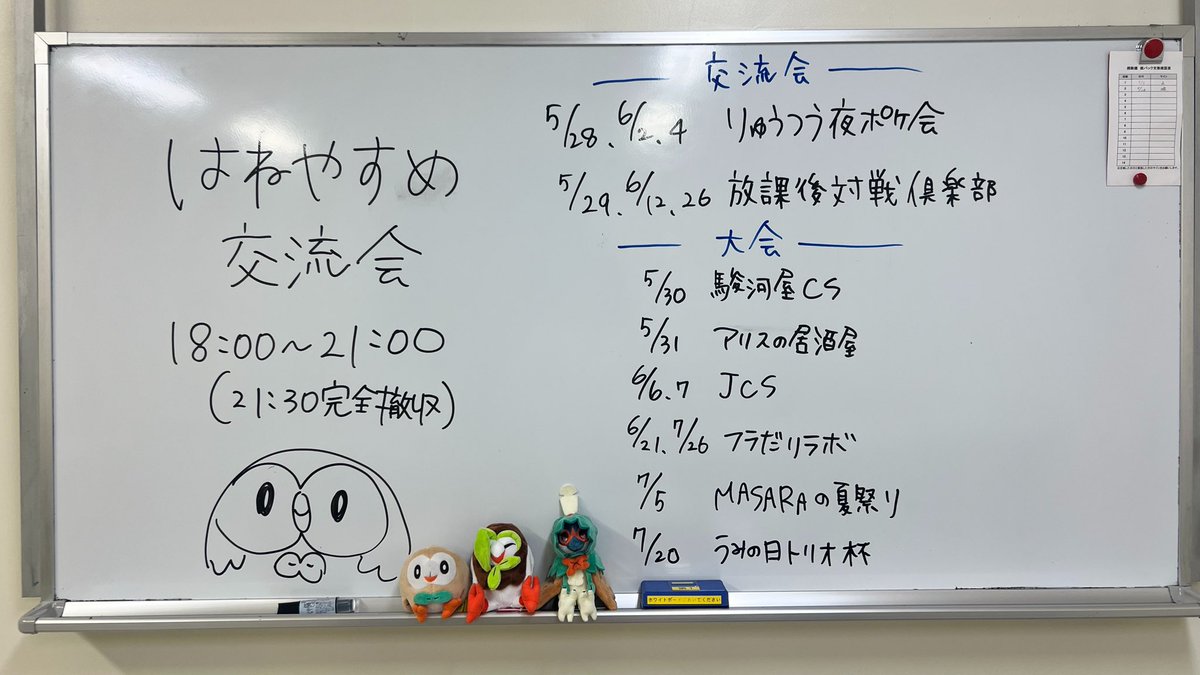 はねやすめ
交流会
18:00〜21:00
(21:30完全撤収)
交流会
5/28、6/2、4 りゅうつう夜ポケ会
5/29、6/12、26 放課後対戦倶楽部
大会
5/30 駿河屋CS
5/31 アリスの居酒屋
6/6、7 JCS
6/21、7/26 フラだリラボ
7/5 MASARAの夏祭り
7/20 うみの日トリオ杯